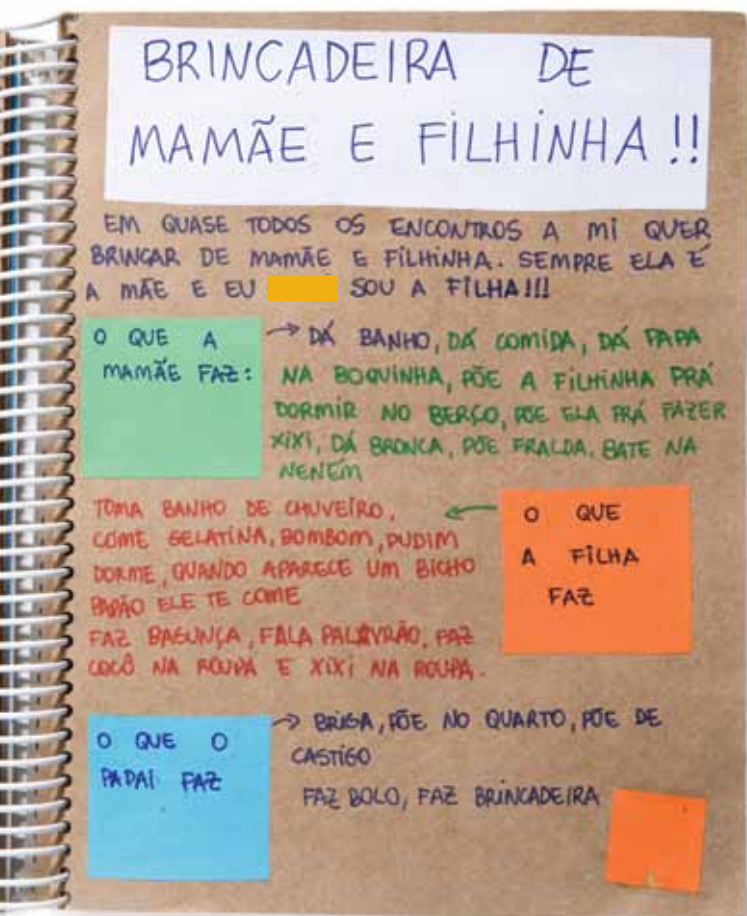 BRINCADEIRA DE
MAMÃE E FILHINHA!!
EM QUASE TODOS OS ENCONTROS A MI QUER
BRINCAR DE MAMÃE E FILHINHA. SEMPRE ELA É
A MÃE E EU SOU A FILHA!!!
O QUE A
MAMÃE FAZ:
→ DÁ BANHO, DÁ COMIDA, DÁ PAPA
NA BOQUINHA, PÕE A FILHINHA PRÁ
DORMIR NO BERÇO, PÕE ELA PRÁ FAZER
XIXI, DÁ BRONCA, PÕE FRALDA, BATE NA
NENEM
O QUE
A FILHA
FAZ
TOMA BANHO DE CHUVEIRO,
COME GELATINA, BOMBOM, PUDIM
DORME, QUANDO APARECE UM BICHO
PAPÃO ELE TE COME
FAZ BAGUNÇA, FALA PALAVRÃO, FAZ
COCÔ NA ROUPA E XIXI NA ROUPA.
O QUE O
PAPAI FAZ
→ BRIGA, PÕE NO QUARTO, PÕE DE
CASTIGO
FAZ BOLO, FAZ BRINCADEIRA